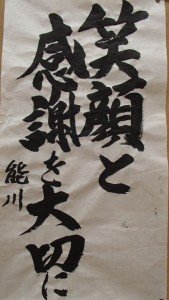 笑顔と
感謝を大切に
能川